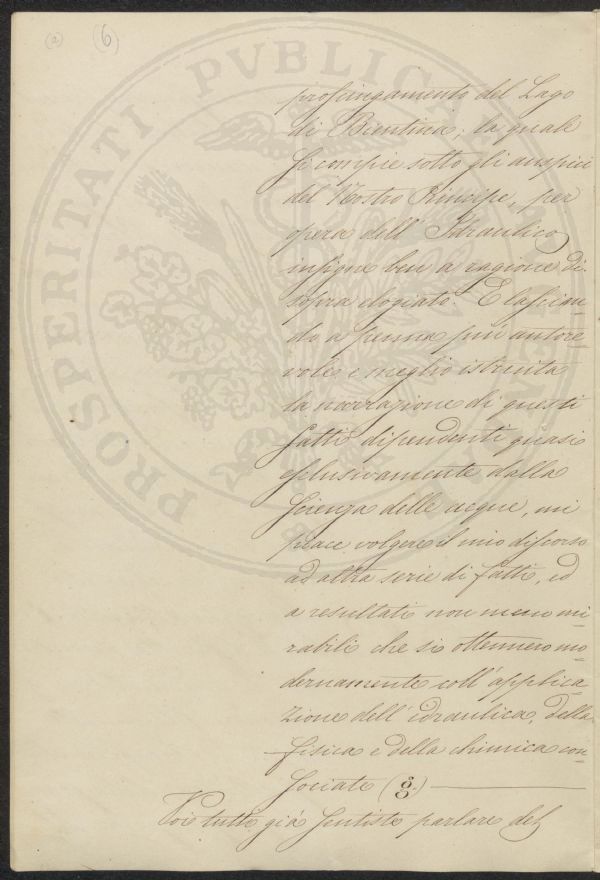 (2) (6)
PROSPERITATI PVBLICAE
prosciugamento del Lago
di Bientina; la quale
si compie sotto gli auspici
del Nostro Principe, per
opera dell' Idraulico
insigne ben a ragione di
sopra elogiato. E lascian_
do a penna più autore_
vole e meglio istruita
la narrazione di questi
fatti dipendenti quasi
esclusivamente dalla
scienza delle acque, mi
piace volgere il mio discorso
ad altra serie di fatti, ed
a resultati non meno mi_
rabili che si ottennero mo_
dernamente coll' applica_
zione dell' idraulica, della
fisica e della chimica con_
sociate (g.)
Voi tutti già sentiste parlare del